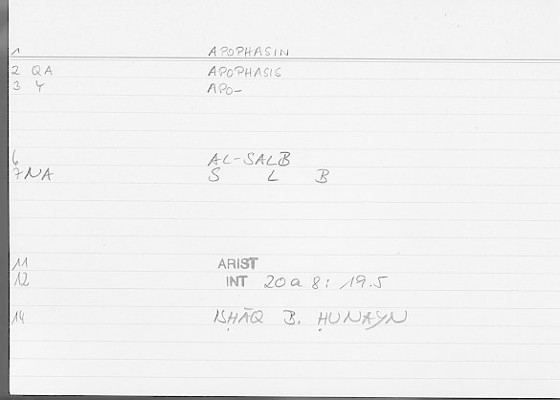 1 APOPHASIN
2 QA APOPHASIS
3 Y APO-
6 AL-SALB
7 NA S L B
11 ARIST
12 INT 20a 8: 19.5
14 ISḤĀQ B. ḤUNAYN